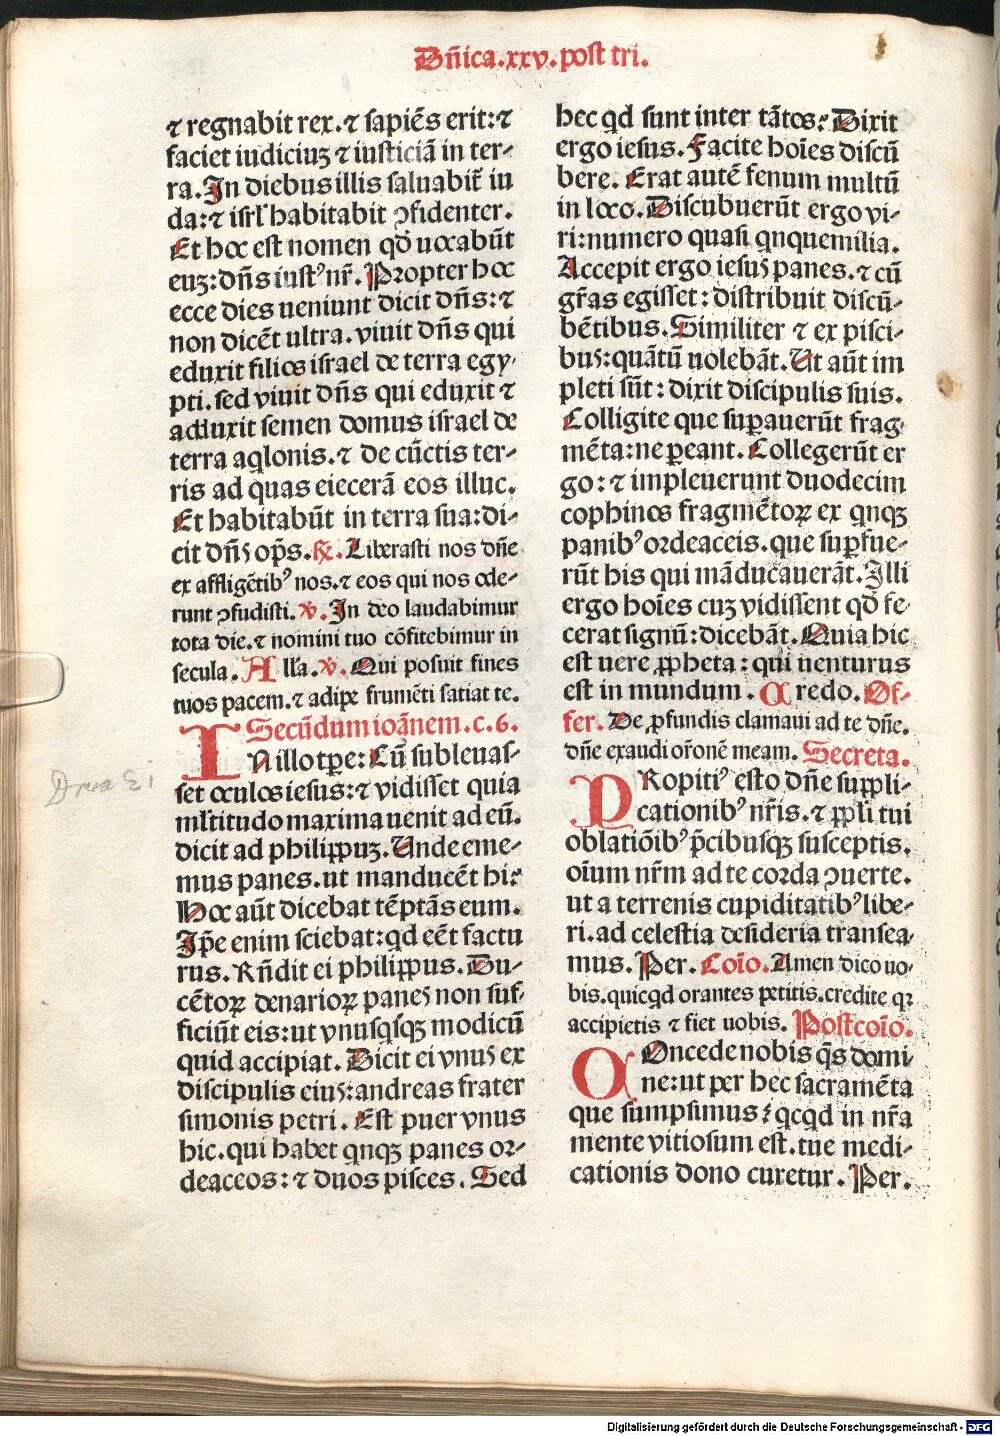 Dn̄ica.xxv.post tri.
⁊ regnabit rex.⁊ sapiēs erit:⁊
faciet iudiciuꝫ ⁊ iusticiā in ter-
ra.In diebus illis saluabit᷑ iu
da:⁊ isrl̓ habitabit ꝯfidenter.
Et hoc est nomen qd̓ uocabūt
euꝫ:dn̄s iustꝰ nr̄.Propter hoc
ecce dies ueniunt dicit dn̄s:⁊
non dicēt ultra.viuit dn̄s qui
eduxit filios israel de terra egy-
pti.sed viuit dn̄s qui eduxit ⁊
adduxit semen domus israel de
terra aqlonis.⁊ de cūctis ter-
ris ad quas eiecerā eos illuc.
Et habitabūt in terra sua:di-
cit dn̄s op̄s.℞.Liberasti nos dn̄e
ex affligētibꝰ nos.⁊ eos qui nos ode-
runt ꝯfudisti.℣.In deo laudabimur
tota die.⁊ nomini tuo cōfitebimur in
secula.Alla.℣.Qui posuit fines
tuos pacem.⁊ adipe frumēti satiat te.
Secūdum ioānem.c.6.
IN illo tꝑe:Cū subleuas-
set oculos iesus:⁊ vidisset quia
ml̓titudo maxima uenit ad eū.
dicit ad philippuꝫ.Unde eme-
mus panes.ut manducēt hi?
Hoc aūt dicebat tēptās eum.
Ip̄e enim sciebat:qd eēt factu
rus.Rn̄dit ei philippus.Du-
cētoꝝ denarioꝝ panes non suf-
ficiūt eis:ut vnusqsqꝫ modicū
quid accipiat.Dicit ei vnus ex
discipulis eius:andreas frater
simonis petri.Est puer vnus
hic.qui habet qnqꝫ panes or-
deaceos:⁊ duos pisces.Sed
hec qd sunt inter tātos?Dixit
ergo iesus.Facite hoīes discū
bere.Erat autē fenum multū
in loco.Discubuerūt ergo vi-
ri:numero quasi qnquemilia.
Accepit ergo iesus panes.⁊ cū
gr̄as egisset:distribuit discū-
bētibus.Similiter ⁊ ex pisci-
bus:quātū uolebāt.Ut aūt im
pleti sūt:dixit discipulis suis.
Colligite que suꝑauerūt frag-
mēta:ne ꝑeant.Collegerūt er
go:⁊ impleuerunt duodecim
cophinos fragmētoꝝ ex qnqꝫ
panibꝰ ordeaceis.que suꝑfue-
rūt his qui māducauerāt.Illi
ergo hoīes cuꝫ vidissent qd̓ fe-
cerat signū:dicebāt.Quia hic
est uere ꝓpheta:qui uenturus
est in mundum.Credo.Of-
fer.De ꝓfundis clamaui ad te dn̄e.
dn̄e exaudi or̄onē meam.Secreta.
PRopitiꝰ esto dn̄e suppli-
cationibꝰ nr̄is.⁊ ppl̓i tui
oblatiōibꝰ p̄cibusqꝫ susceptis.
oīum nr̄m ad te corda ꝯuerte.
ut a terrenis cupiditatibꝰ libe-
ri.ad celestia desideria transea-
mus.Per.Coīo.Amen dico uo-
bis.quicqd orantes petitis.credite qꝛ
accipietis ⁊ fiet uobis.Postcoīo.
COncede nobis qs̄ domi-
ne:ut per hec sacramēta
que sumpsimus:qcqd in nr̄a
mente vitiosum est.tue medi-
cationis dono curetur.Per.
Digitalisierung gefördert durch die Deutsche Forschungsgemeinschaft - DFG